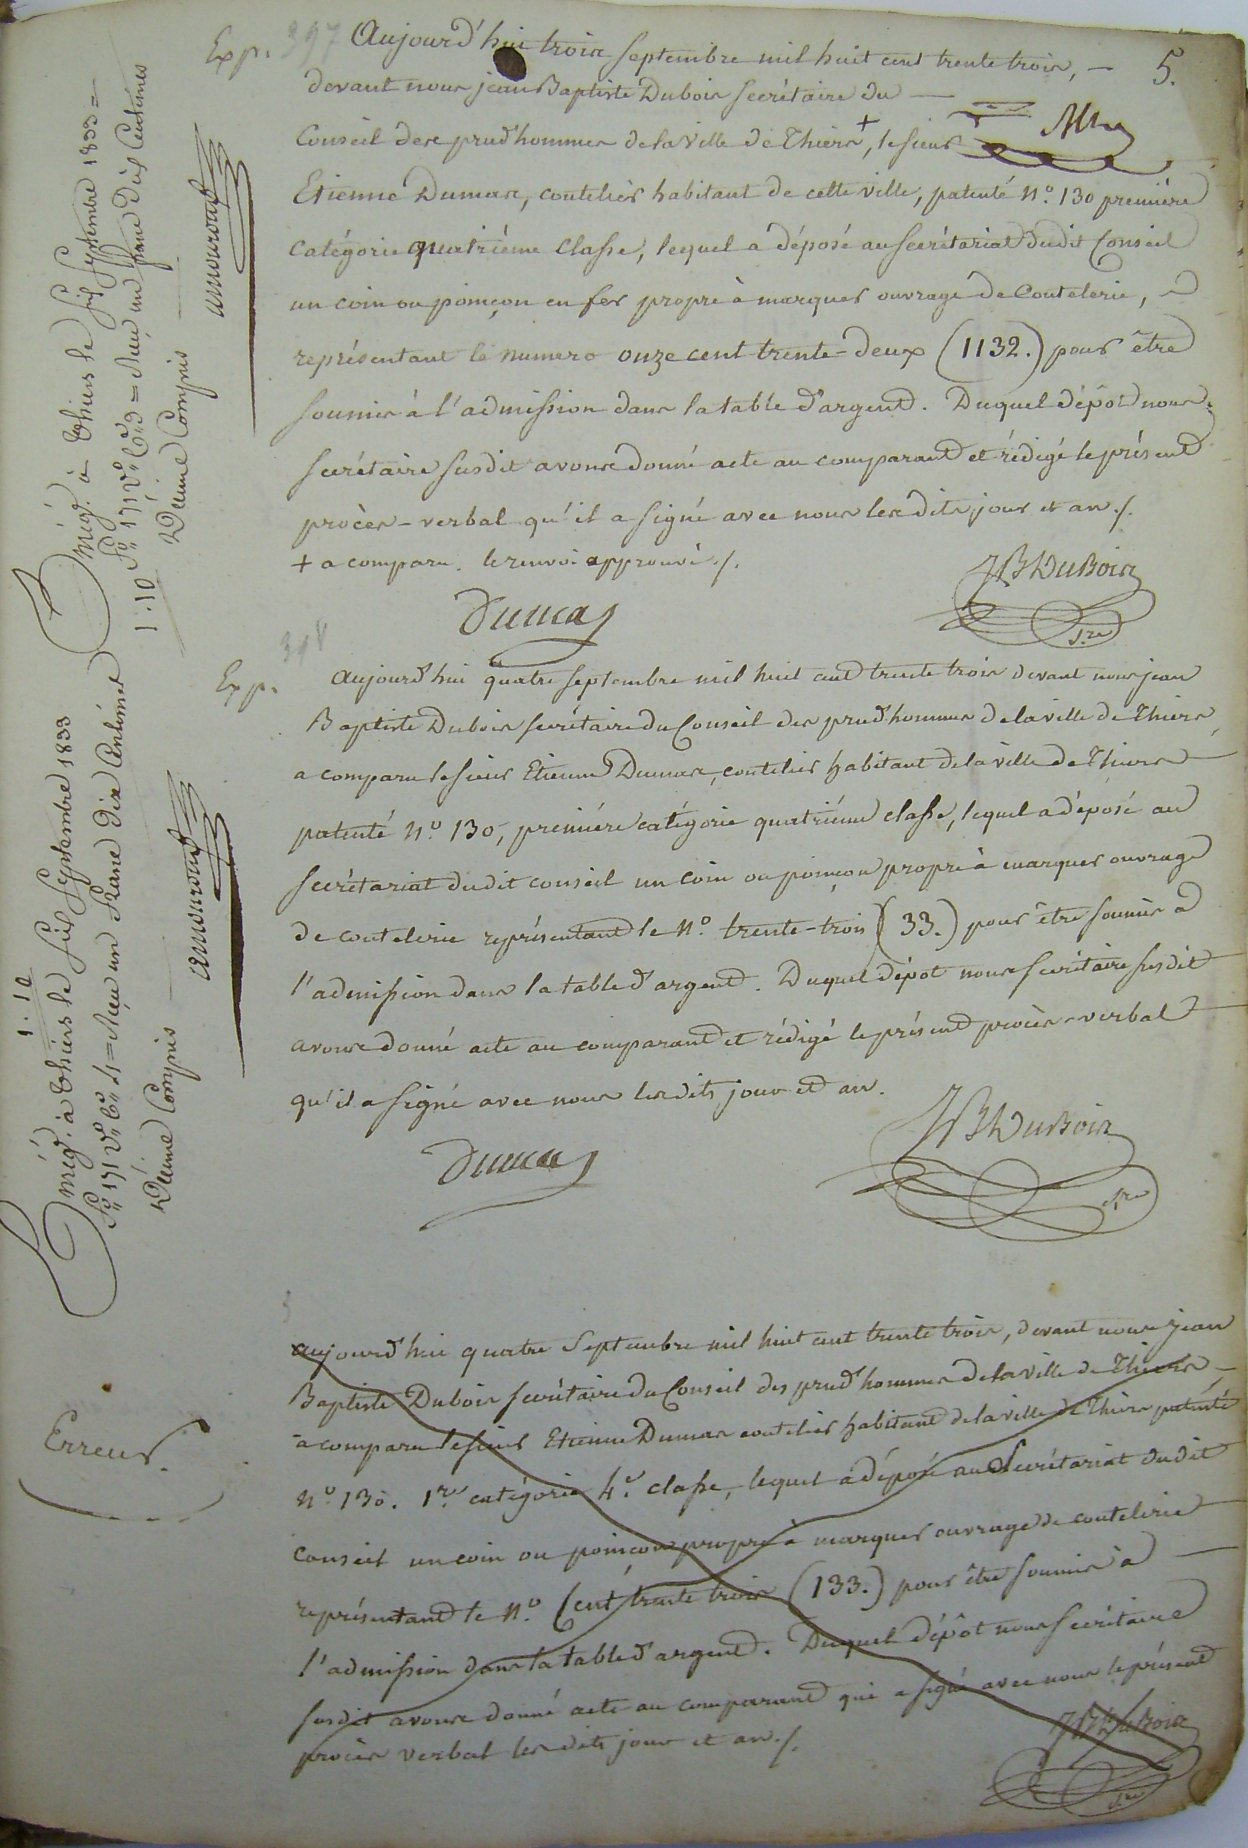 5.
Exp. 397 Aujourd'hui trois septembre mil huit cent trente trois, —
devant nous jean Baptiste Dubois secrétaire du —
Conseil des prud'hommes de la ville de Thiers +, le sieur
Etienne Dumas, coutelier habitant de cette ville, patenté N.º 130 première
catégorie quatrième classe, lequel a déposé au secrétariat dudit Conseil
un coin ou poinçon en fer propre à marquer ouvrage de Coutelerie,
représentant le numero onze cent trente-deux (1132.) pour être
soumis à l'admission dans la table d'argent. Duquel dépôt nous
secrétaire susdit avons donné acte au comparant et rédigé le présent
procès-verbal qu'il a signé avec nous lesdits jour et an ./.
+ a comparu. le renvoi approuvé ./.
Dumas
JB Dubois
s.re
Enreg. à Thiers le six Septembre 1833 =
f.º 171 v.º c. 3 = Reçu un franc dix Centimes
1.10 Décime Compris
Exp. 398 Aujourd'hui quatre septembre mil huit cent trente trois devant nous jean
Baptiste Dubois secrétaire du Conseil des prud'hommes de la ville de Thiers
a comparu le sieur Etienne Dumas, coutelier habitant de la ville de Thiers —
patenté N.º 130, première catégorie quatrième classe, lequel a déposé au
secrétariat dudit conseil un coin ou poinçon propre à marquer ouvrage
de coutelerie représentant le N.º trente-trois (33.) pour être soumis à
l'admission dans la table d'argent. Duquel dépot nous secrétaire susdit
avons donné acte au comparant et rédigé le présent procès-verbal
qu'il a signé avec nous lesdits jour et an.
Dumas
JB Dubois
s.re
1.10
Enreg. à Thiers le six Septembre 1833
f.º 171 v.º c. 4 = Reçu un Franc dix Centimes
Décime Compris
Erreur.
aujourd'hui quatre Septembre mil huit cent trente trois, devant nous jean
Baptiste Dubois secrétaire du Conseil des prud'hommes de la ville de Thiers —
a comparu le sieur Etienne Dumas coutelier habitant de la ville de Thiers patenté
N.º 130. 1.re catégorie 4.e classe, lequel a déposé au Secrétariat dudit
conseil un coin ou poinçon propre à marquer ouvrage de coutelerie
représentant le N.º Cent trente trois (133.) pour être soumis à —
l'admission dans la table d'argent. Duquel dépôt nous secrétaire
susdit avons donné acte au comparant qui a signé avec nous le présent
procès verbal lesdits jour et an ./.
JB Dubois
s.re